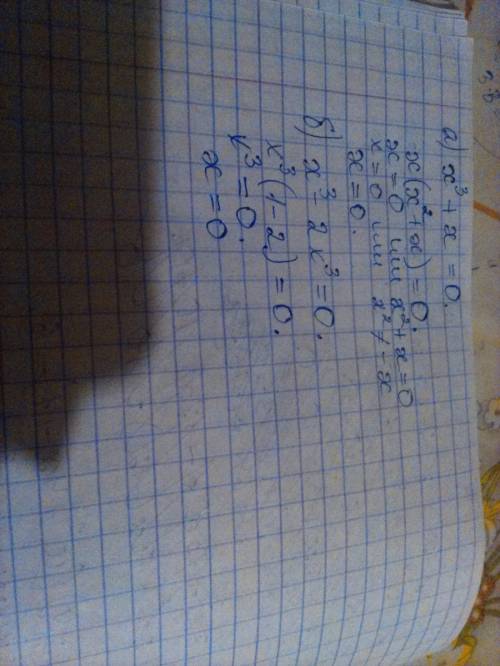 а) x³ + x = 0.
x(x² + x) = 0.
x = 0 или x² + x = 0
x = 0 или x² ≠ - x
x = 0.
б) x³ - 2x³ = 0.
x³(1 - 2) = 0.
x³ = 0.
x = 0